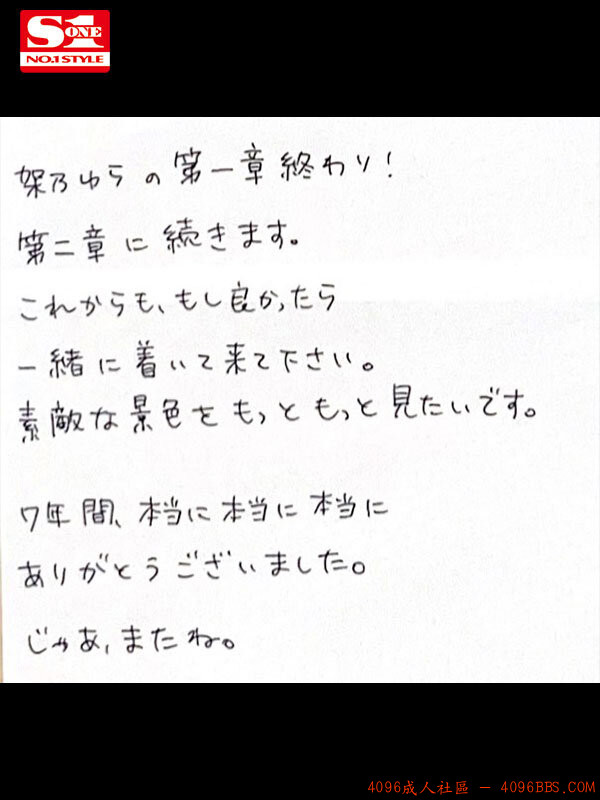 S1
ONE
NO.1 STYLE
架乃ゆらの第一章終わり!
第二章に続きます。
これからも、もし良かったら
一緒に着いて来て下さい。
素敵な景色をもっともっと見たいです。
7年間、本当に本当に本当に
ありがとうございました。
じゃあ、またね。
4096成人社區 - 4096BBS.COM